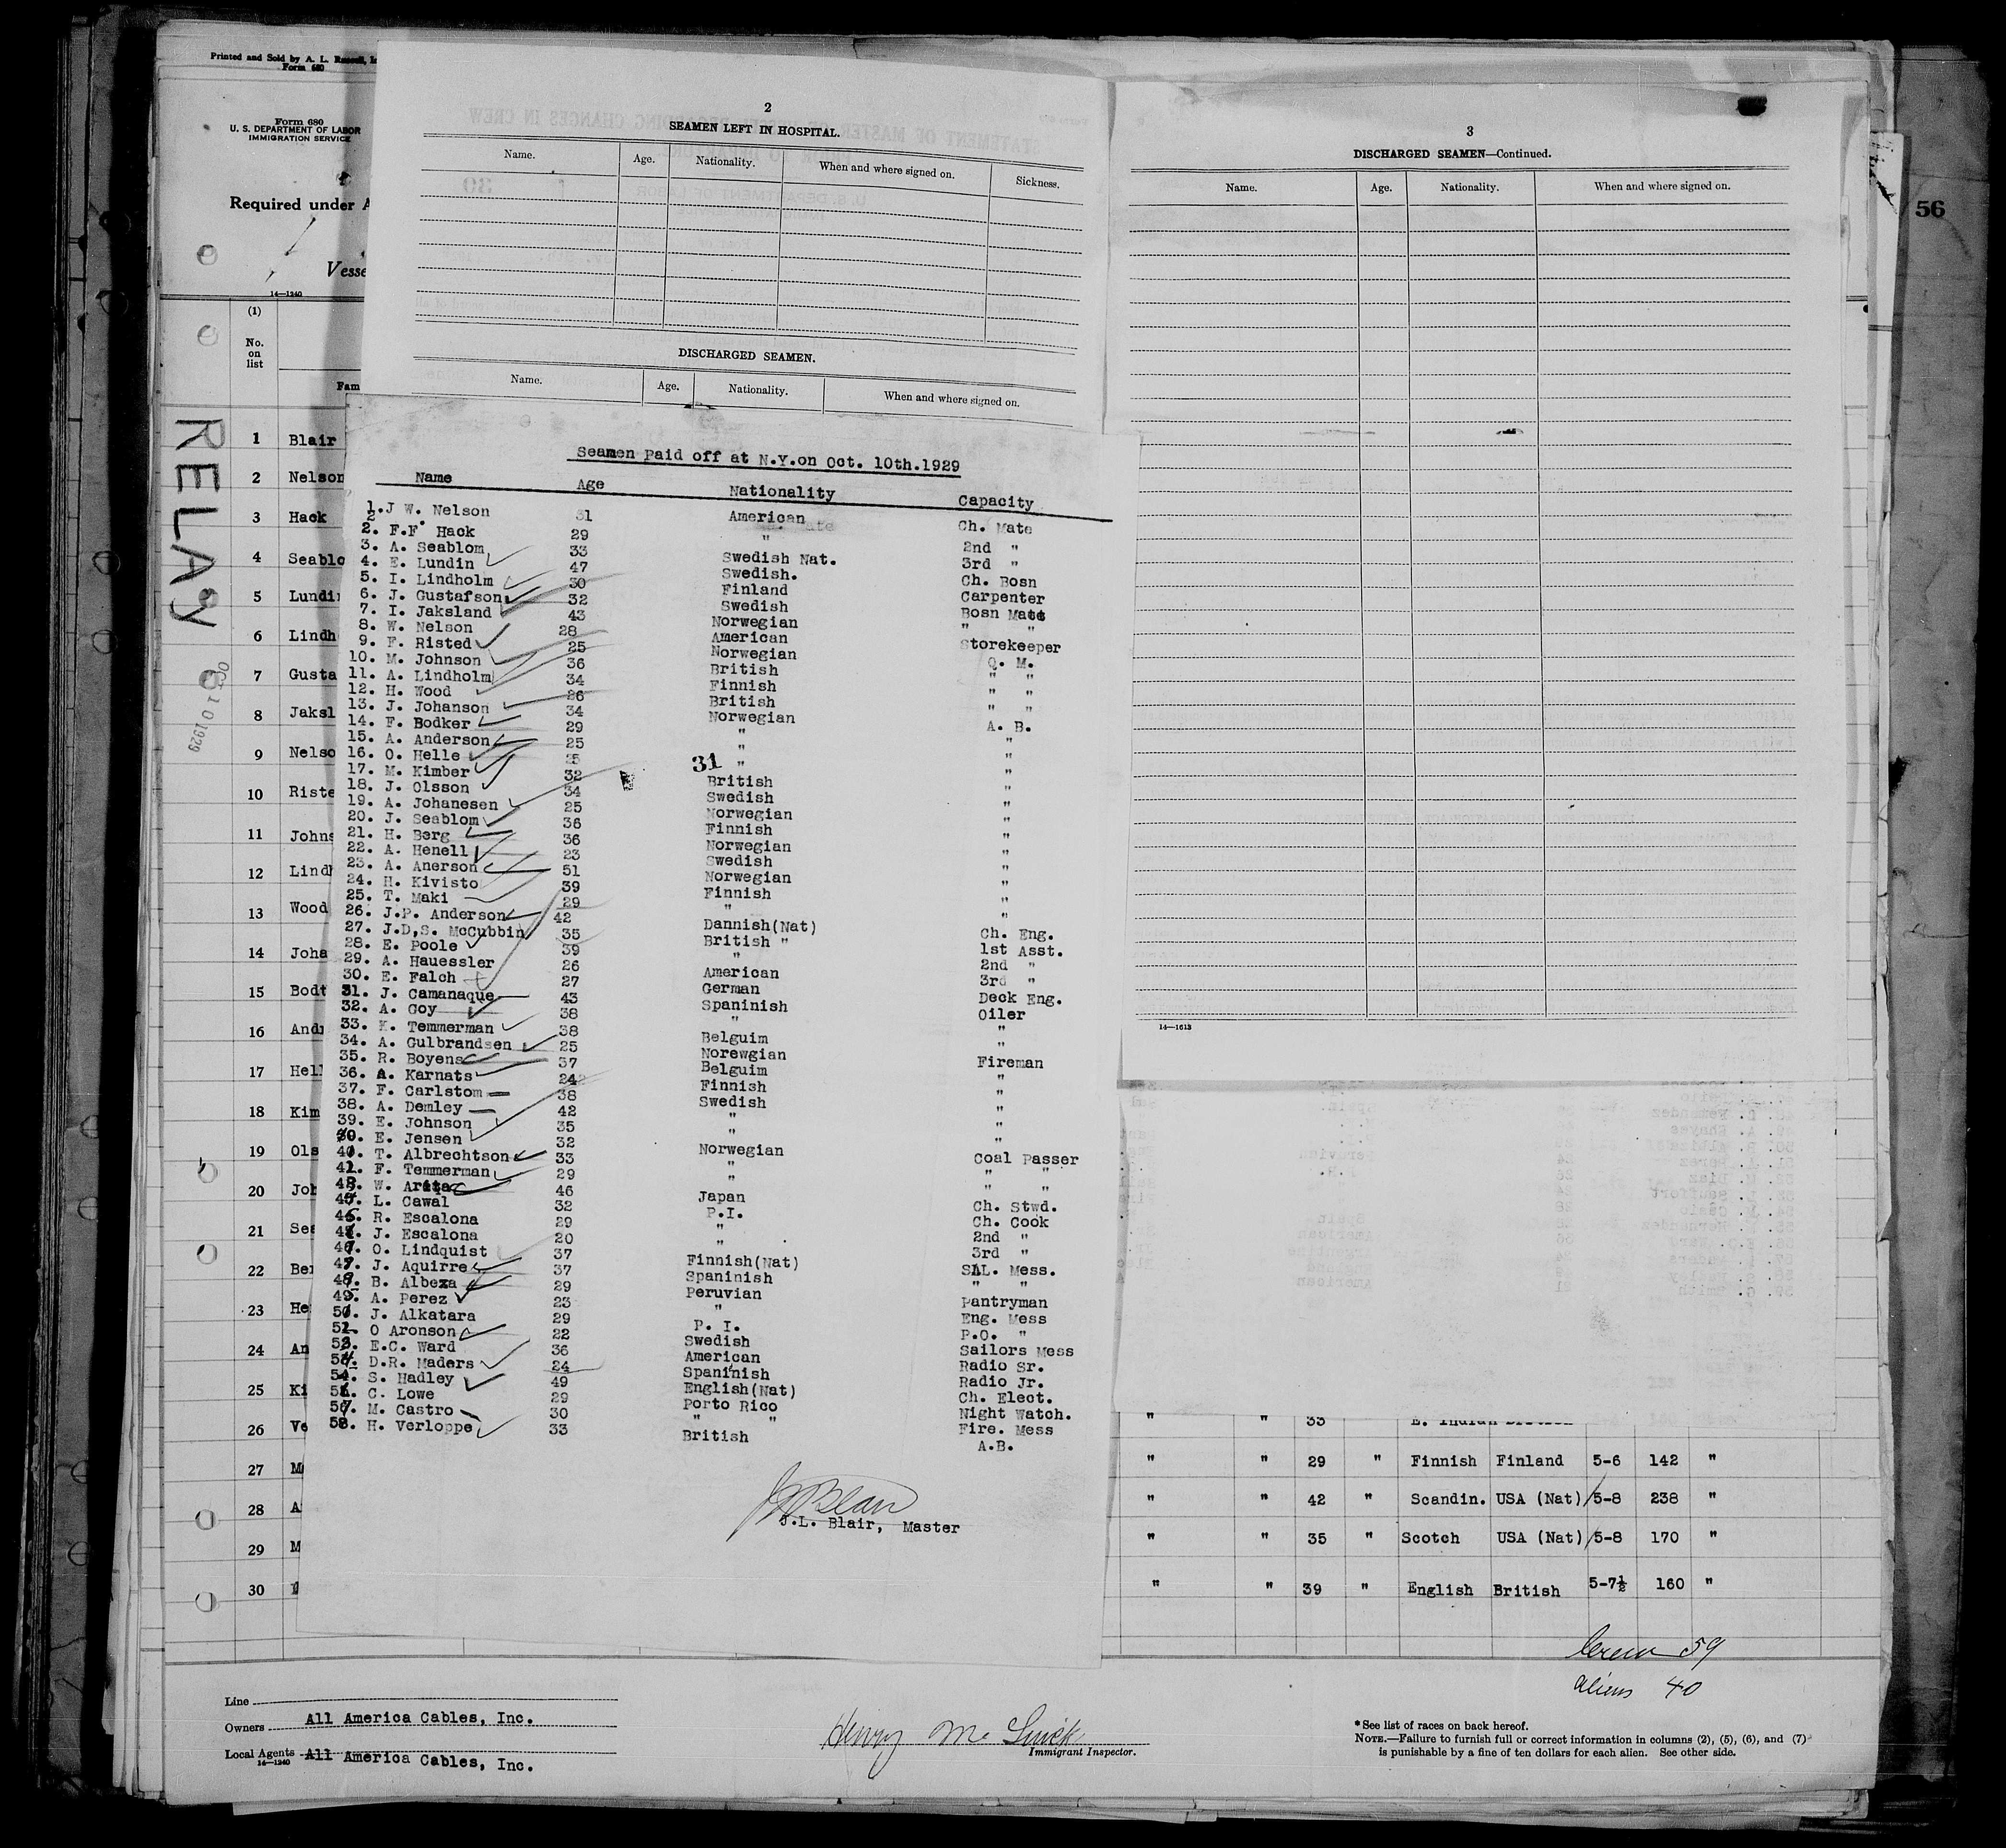 Printed and Sold by A. L. Russell, In
Form 680
Form 680
U. S. DEPARTMENT OF LABOR
IMMIGRATION SERVICE
Required under A
Vesse
14—1240
(1)
No.
on
list
Fam
RELAY
OCT 10 1929
1 Blair
2 Nelson
3 Hack
4 Seablo
5 Lundi
6 Lindh
7 Gusta
8 Jaksl
9 Nelso
10 Riste
11 Johns
12 Lindh
13 Wood
14 Joha
15 Bodt
16 And
17 Hell
18 Kim
19 Ols
20 Joh
21 Sea
22 Ber
23 He
24 An
25 Ki
26 Ve
27 M
28 A
29 M
30
2
SEAMEN LEFT IN HOSPITAL.
Name. Age. Nationality. When and where signed on. Sickness.
DISCHARGED SEAMEN.
Name. Age. Nationality. When and where signed on.
Seamen Paid off at N.Y.on Oct. 10th.1929
Name Age Nationality Capacity
1.J W. Nelson 31 American Ch. Mate
2. F.F Hack 29 " 2nd "
3. A. Seablom 33 Swedish Nat. 3rd "
4. E. Lundin 47 Swedish. Ch. Bosn
5. I. Lindholm 30 Finland Carpenter
6. J. Gustafson 32 Swedish Bosn Mate
7. I. Jaksland 43 Norwegian " "
8. W. Nelson 28 American Storekeeper
9. F. Risted 25 Norwegian Q. M.
10. M. Johnson 36 British " "
11. A. Lindholm 34 Finnish " "
12. H. Wood 26 British " "
13. J. Johanson 34 Norwegian A. B.
14. F. Bodker 29 " "
15. A. Anderson 25 " "
16. O. Helle 25 31 " "
17. M. Kimber 32 British "
18. J. Olsson 34 Swedish "
19. A. Johanesen 25 Norwegian "
20. J. Seablom 36 Finnish "
21. H. Berg 36 Norwegian "
22. A. Henell 23 Swedish "
23. A. Anerson 51 Norwegian "
24. H. Kivisto 39 Finnish "
25. T. Maki 29 " "
26. J.P. Anderson 42 Dannish(Nat) Ch. Eng.
27. J.D,S. McCubbin 35 British " 1st Asst.
28. E. Poole 39 " 2nd "
29. A. Hauessler 26 American 3rd "
30. E. Falch 27 German Deck Eng.
31. J. Camanaque 43 Spaninish Oiler
32. A. Goy 38 " "
33. K. Temmerman 38 Belguim "
34. A. Gulbrandsen 25 Norewgian Fireman
35. R. Boyens 37 Belguim "
36. A. Karnats 24 Finnish "
37. F. Carlstom 38 Swedish "
38. A. Demley 42 " "
39. E. Johnson 35 " "
40. E. Jensen 32 Norwegian Coal Passer
41. T. Albrechtson 33 " " "
42. F. Temmerman 29 " "
43. W. Arita 46 Japan Ch. Stwd.
L. Cawal 32 P.I. Ch. Cook
R. Escalona 29 " 2nd "
J. Escalona 20 " 3rd "
O. Lindquist 37 Finnish(Nat) SAL. Mess.
J. Aquirre 37 Spaninish " "
B. Albexa 29 Peruvian Pantryman
A. Perez 23 " Eng. Mess
J. Alkatara 29 P. I. P.O. "
O Aronson 22 Swedish Sailors Mess
E.C. Ward 36 American Radio Sr.
D.R. Maders 24 Spaninish Radio Jr.
S. Hadley 49 English(Nat) Ch. Elect.
C. Lowe 29 Porto Rico Night Watch.
57. M. Castro 30 " " Fire. Mess
58. H. Verloppe 33 British A.B.
J L Blair
J.L. Blair, Master
3
DISCHARGED SEAMEN—Continued.
Name. Age. Nationality. When and where signed on.
14—1613
56
" " 33 E. Indian British
" " 29 " Finnish Finland 5-6 142 "
" " 42 " Scandin. USA (Nat) 5-8 238 "
" " 35 " Scotch USA (Nat) 5-8 170 "
" " 39 " English British 5-7½ 160 "
Crew 59
aliens 40
Line
Owners All America Cables, Inc.
Local Agents All America Cables, Inc.
14—1240
Immigrant Inspector.
*See list of races on back hereof.
NOTE.—Failure to furnish full or correct information in columns (2), (5), (6), and (7)
is punishable by a fine of ten dollars for each alien. See other side.